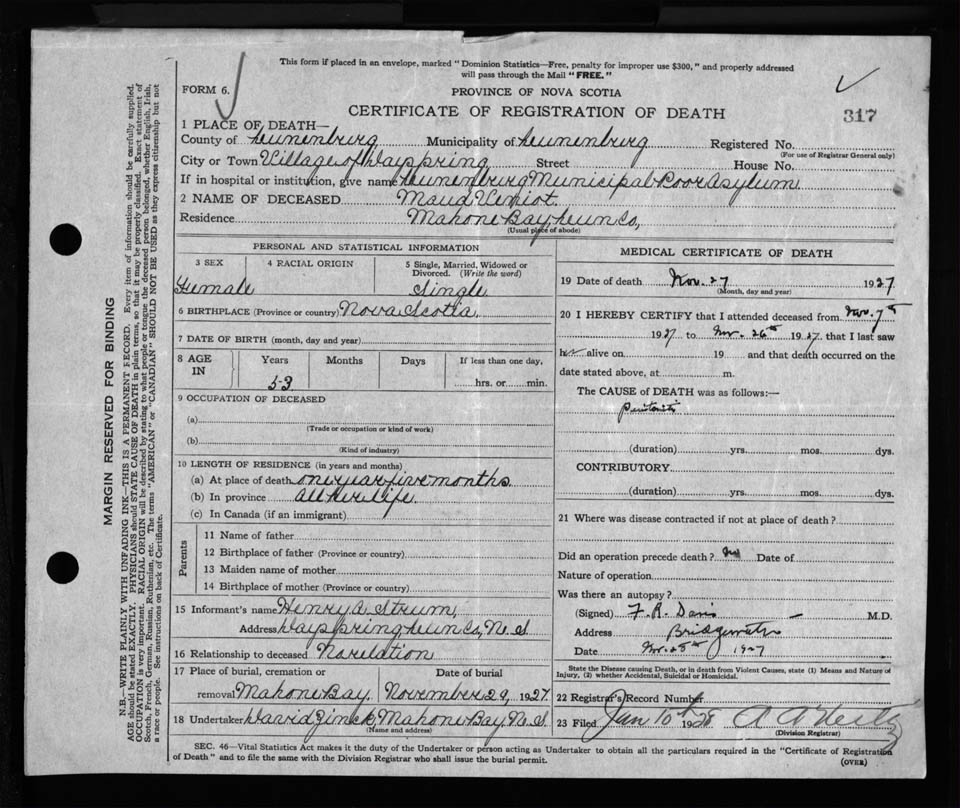 This form if placed in an envelope, marked "Dominion Statistics—Free, penalty for improper use $300," and properly addressed
will pass through the Mail "FREE."
FORM 6.
PROVINCE OF NOVA SCOTIA
CERTIFICATE OF REGISTRATION OF DEATH
317
1 PLACE OF DEATH—
County of Lunenburg Municipality of Lunenburg Registered No.
(For use of Registrar General only)
City or Town Village of Dayspring Street House No.
If in hospital or institution, give name Lunenburg Municipal Poor Asylum
2 NAME OF DECEASED Maud Veniot
Residence Mahone Bay Lun Co,
(Usual place of abode)
PERSONAL AND STATISTICAL INFORMATION
3 SEX 4 RACIAL ORIGIN 5 Single, Married, Widowed or
Divorced. (Write the word)
Female Single
6 BIRTHPLACE (Province or country) Nova Scotia
7 DATE OF BIRTH (month, day and year)
8 AGE IN Years Months Days If less than one day,
53 hrs. or min.
9 OCCUPATION OF DECEASED
(a)
(Trade or occupation or kind of work)
(b)
(Kind of industry)
10 LENGTH OF RESIDENCE (in years and months)
(a) At place of death one year five months
(b) In province all her life
(c) In Canada (if an immigrant)
Parents
11 Name of father
12 Birthplace of father (Province or country)
13 Maiden name of mother
14 Birthplace of mother (Province or country)
15 Informant's name Henry A Strum,
Address Dayspring Lun Co, N.S.
16 Relationship to deceased No relation
17 Place of burial, cremation or Date of burial
removal Mahone Bay. November 29, 1927
18 Undertaker David Zinck, Mahone Bay N.S.
(Name and address)
MEDICAL CERTIFICATE OF DEATH
19 Date of death Nov. 27 1927
(Month, day and year)
20 I HEREBY CERTIFY that I attended deceased from Nov. 7th
1927 to Nov. 26th 1927, that I last saw
her alive on 19 and that death occurred on the
date stated above, at m.
The CAUSE of DEATH was as follows:—
Peritonitis
(duration) yrs. mos. dys.
CONTRIBUTORY
(duration) yrs. mos. dys.
21 Where was disease contracted if not at place of death?
Did an operation precede death? No Date of
Nature of operation
Was there an autopsy?
(Signed) F. R. Davis M.D.
Address Bridgewater
Date Nov. 28th 1927
State the Disease causing Death, or in death from Violent Causes, state (1) Means and Nature of
Injury, (2) whether Accidental, Suicidal or Homicidal.
22 Registrar's Record Number
23 Filed Jan 10th 1928
(Division Registrar)
SEC. 46—Vital Statistics Act makes it the duty of the Undertaker or person acting as Undertaker to obtain all the particulars required in the "Certificate of Registration
of Death" and to file the same with the Division Registrar who shall issue the burial permit.
(OVER)
MARGIN RESERVED FOR BINDING
N.B.—WRITE PLAINLY WITH UNFADING INK—THIS IS A PERMANENT RECORD. Every item of information should be carefully supplied.
AGE should be stated EXACTLY. PHYSICIANS should STATE CAUSE OF DEATH in plain terms, so that it may be properly classified. Exact statement of
OCCUPATION is very important. RACIAL ORIGIN will be described by stating to what people or tongue the deceased person belonged, whether English, Irish,
Scotch, French, German, Russian, Ruthenian, etc. The terms "AMERICAN" or "CANADIAN" SHOULD NOT BE USED as they express citizenship but not
a race or people. See instructions on back of Certificate.